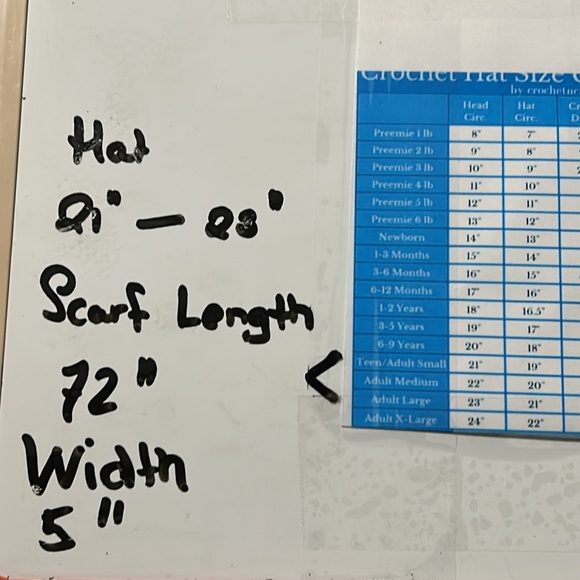 Hat
21" — 23"
Scarf Length
72" <
Width
5"
Crochet Hat Size
by
Head Circ. Hat Circ.
Preemie 1 lb 8" 7"
Preemie 2 lb 9" 8"
Preemie 3 lb 10" 9"
Preemie 4 lb 11" 10"
Preemie 5 lb 12" 11"
Preemie 6 lb 13" 12"
Newborn 14" 13"
1-3 Months 15" 14"
3-6 Months 16" 15"
6-12 Months 17" 16"
1-2 Years 18" 16.5"
3-5 Years 19" 17"
6-9 Years 20" 18"
Teen/Adult Small 21" 19"
Adult Medium 22" 20"
Adult Large 23" 21"
Adult X-Large 24" 22"